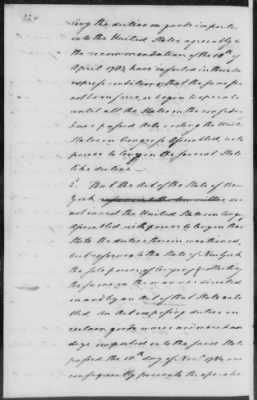 224
ling the duties on goods imported
into the United States, agreeably to
the recommendation of the 18th of
April 1783, have inserted in them an
express condition, that the same shall
not be in force, or begin to operate
until all the States in the confedn
have passed Acts vesting the United
States in Congress Assembled, with
power to levy in the several States
like duties —
2. That the Act of the State of New
York does
not invest the United States in Congs
Assembled, with power to levy in that
State the duties therein mentioned,
but reserves to the State of New York
the sole power of levying & collecting
the same, in the manner directed
in and by an Act of that State enti
tled, An Act imposing duties on
certain goods, wares and merchan
dize imported into the said State
passed the 18th day of Novr 1784, and
consequently prevents the operatio